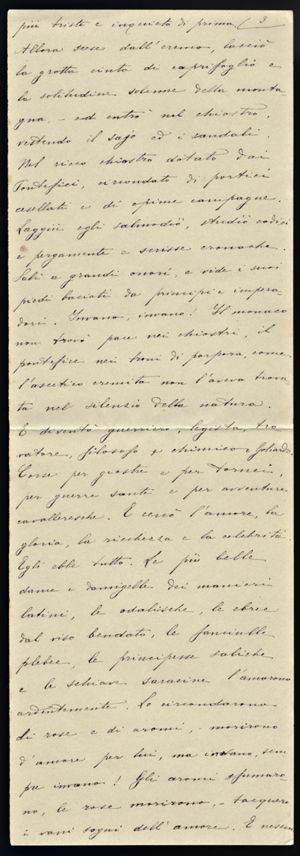 più triste e inquieto di prima. / 3
Allora scese dall'eremo, lasciò
la grotta cinta di caprifoglio e
la solitudine solenne della monta-
gna. - ed entrò nel chiostro,
vestendo il sajo ed i sandali.
Nel ricco chiostro dotato dai
Pontefici, circondato di portici
cesellati e di opime campagne.
Laggiù egli salmodiò, studiò codici
e pergamente e scrisse cronache.
Salì a grandi onori, e vide i suoi
piedi baciati da principi e impera-
dori. Invano, invano! Il monaco
non trovò pace nei chiostri, il
pontefice nei troni di porpora, come
l'ascetico eremita non l'aveva trova
ta nel silenzio della natura.
E diventò guerriero, legista, tro
vatore, filosofo e chimico e goliardo.
Corse per giostre e per tornei
per guerre sante e per avventure
cavalleresche. E cercò l'amore, la
gloria, la ricchezza e la celebrità.
Egli ebbe tutto. Le più belle
dame e damigelle dei manieri
latini, le odalische, le ebree
dal viso bendato, le fanciulle
plebee, le principesse saliche
e le schiave saracine l'amarono
ardentemente. Lo circondarono
di rose e di aromi, - morirono
d'amore per lui, ma invano, sem
pre invano! Gli aromi sfumaro-
no, le rose morirono, - tacquero
i vani sogni dell'amore. E nessun